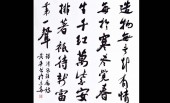 造物無言却有情
每於寒盡覺春
生千紅萬紫安
排著祇待新雷
第一聲